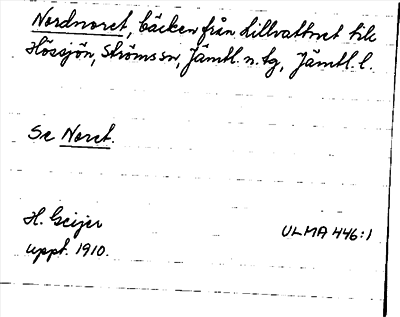 Nordnoret, bäcken från Lillvattnet till
Hössjön, Ströms sn, Jämtl. n. tg, Jämtl. l.
Se Noret.
H. Geijer
uppt. 1910.
ULMA 446:1